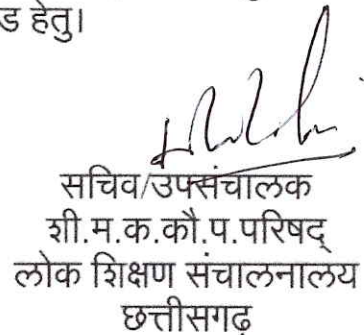 ड हेतु।
सचिव/उपसंचालक
शी.म.क.कौ.प.परिषद्
लोक शिक्षण संचालनालय
छत्तीसगढ़